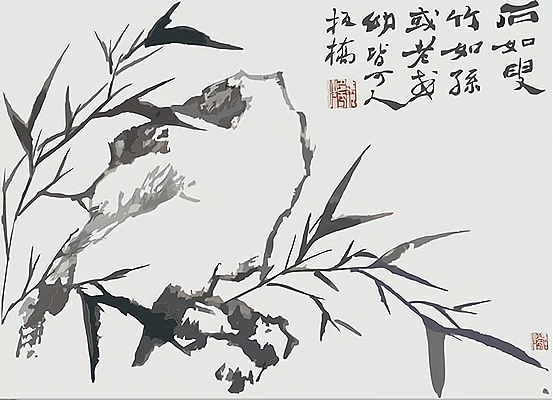 石如叟
竹如孫
或老或
幼皆可人
板橋